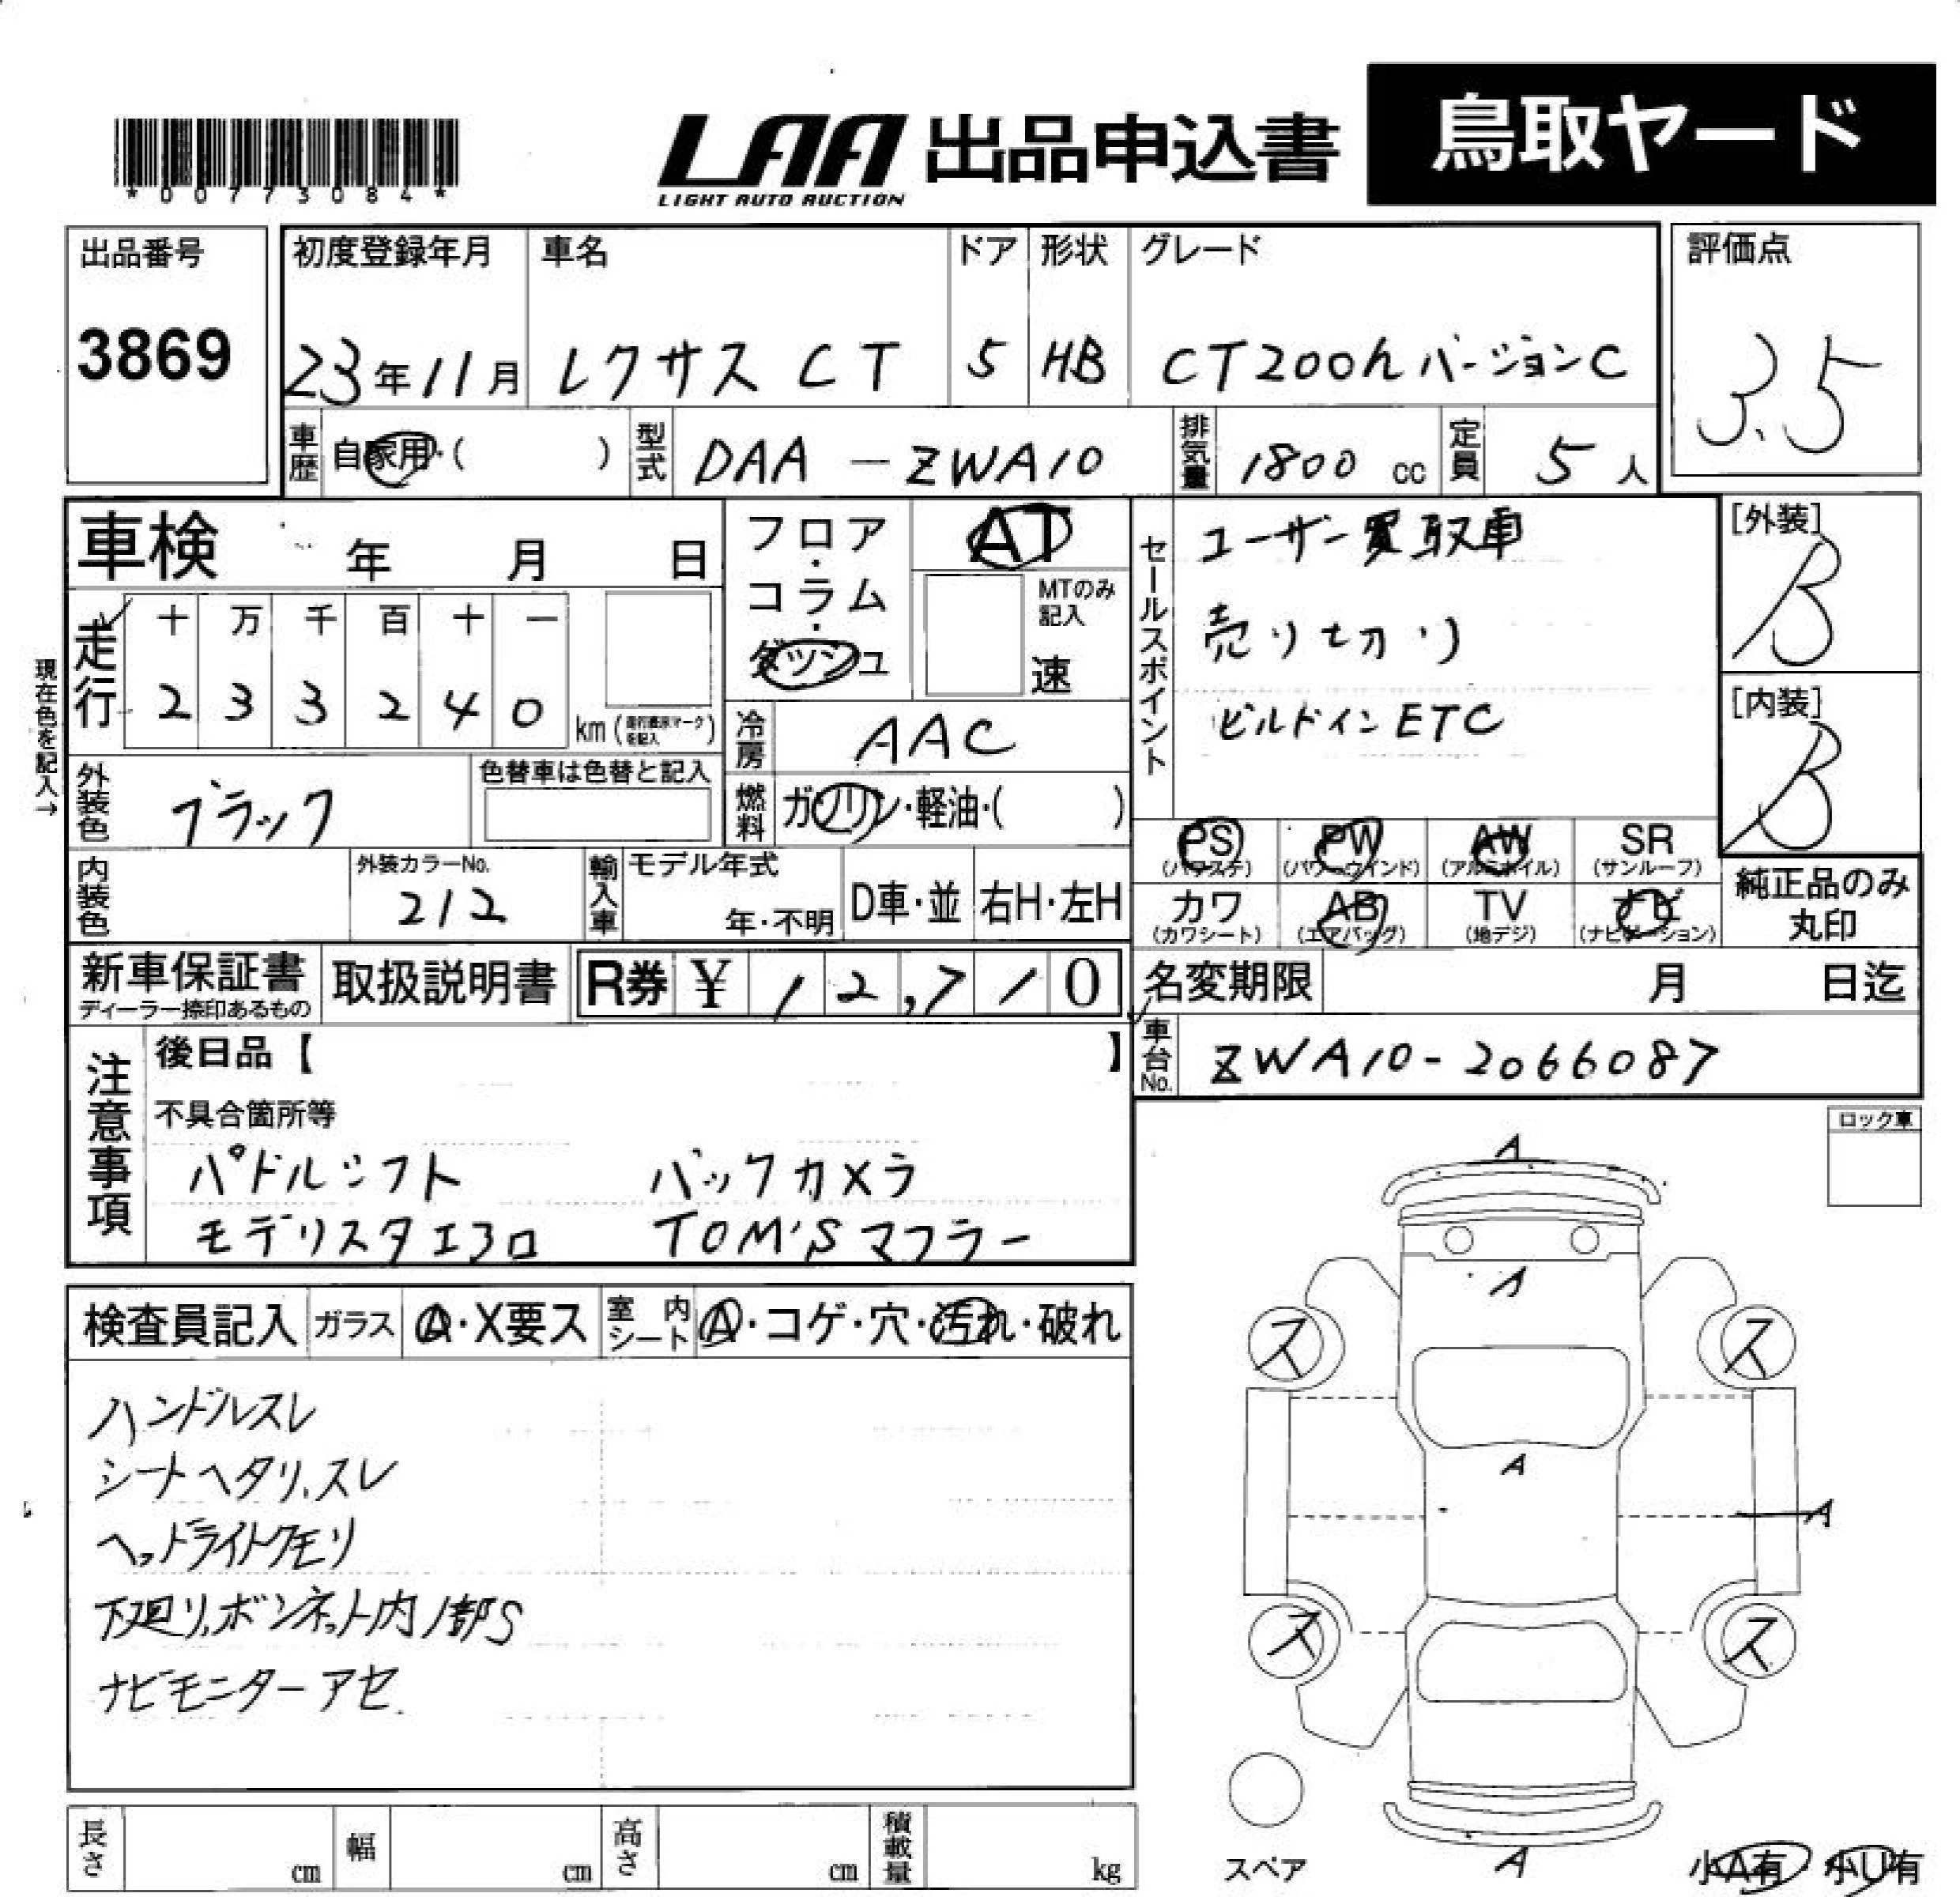 *00773084*
LAA 出品申込書 鳥取ヤード
LIGHT AUTO AUCTION
出品番号 初度登録年月 車名 ドア 形状 グレード 評価点
3869 23年11月 レクサス CT 5 HB CT200h バージョンC 3.5
車歴 自家用・( ) 型式 DAA-ZWA10 排気量 1800 cc 定員 5 人
車検 年 月 日
フロア・コラム・ダッシュ
AT
MTのみ記入
速
セールスポイント
ユーザー買取車
売り切り
ビルドインETC
[外装]
B
[内装]
B
現在色を記入→
走行 十 万 千 百 十 一
2 3 3 2 4 0 km
冷房 AAC
外装色 ブラック 色替車は色替と記入
燃料 ガソリン・軽油・( )
PS PW AW SR
(パワステ) (パワーウインド) (アルミホイル) (サンルーフ)
カワ AB TV ナビ
(カワシート) (エアバッグ) (地デジ) (ナビゲーション)
純正品のみ
丸印
内装色 外装カラーNo. 212 輸入車 モデル年式 年・不明 D車・並 右H・左H
新車保証書 取扱説明書 R券 ¥ 12,710 名変期限 月 日迄
ディーラー捺印あるもの
車台No. ZWA10-2066087
注意事項
後日品【 】
不具合箇所等
パドルシフト バックカメラ
モデリスタエアロ TOM'Sマフラー
ロック車
検査員記入 ガラス A・X要ス 室内シート A・コゲ・穴・汚れ・破れ
ハンドルスレ
シートヘタリ、スレ
ヘッドライトクモリ
下廻り、ボンネット内ノ部S
ナビモニターアセ
A
A
ス ス
A
A
ス ス
A
スペア
小A有 小U有
長さ cm 幅 cm 高さ cm 積載量 kg